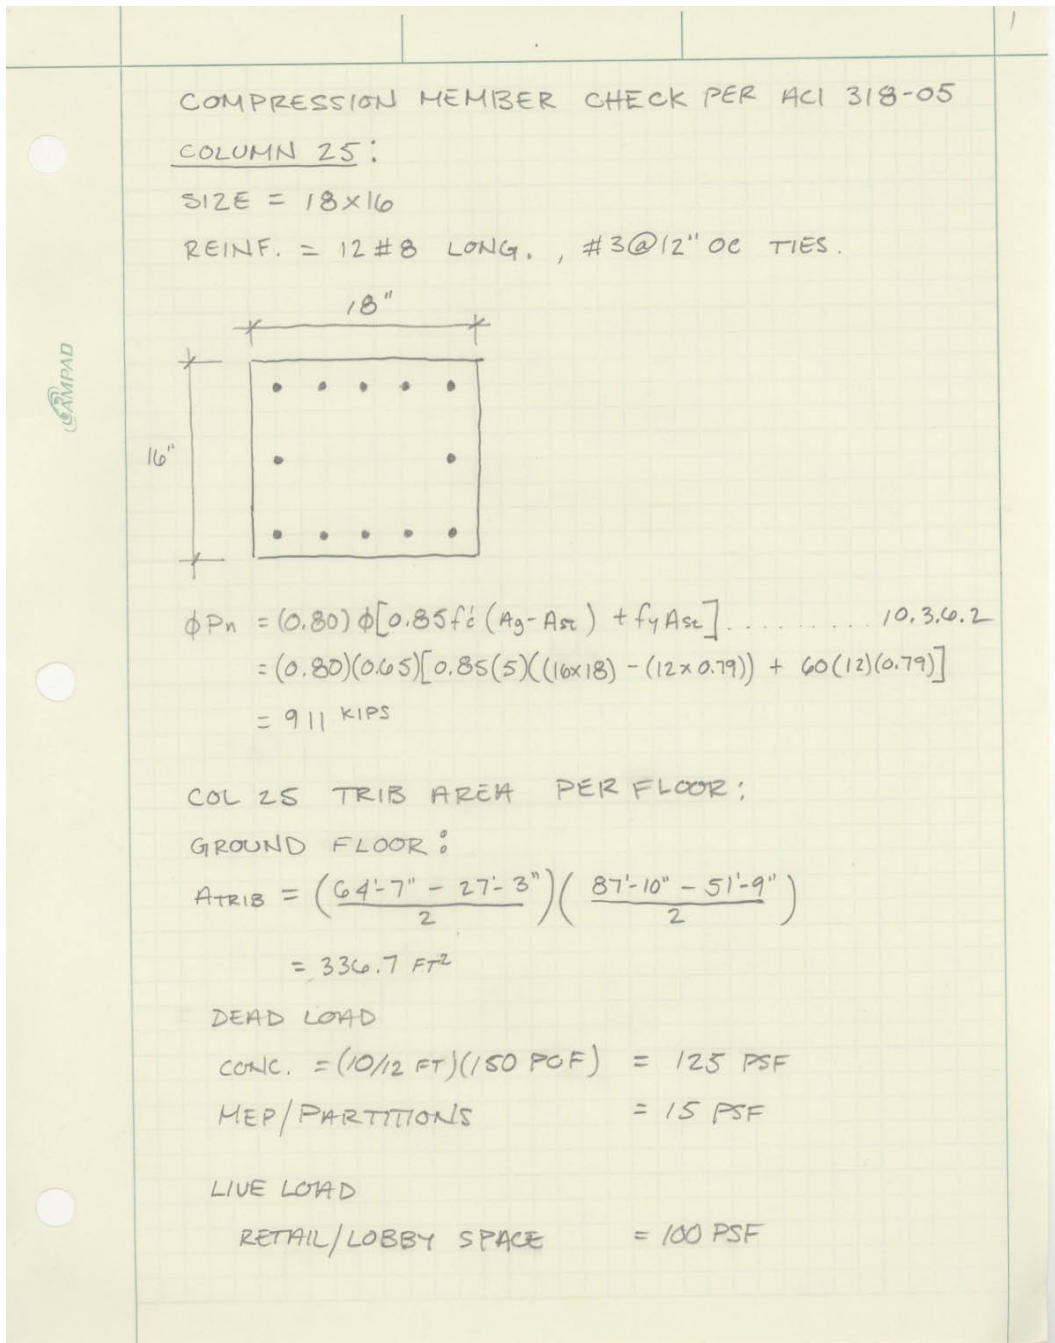 1
COMPRESSION MEMBER CHECK PER ACI 318-05
COLUMN 25:
SIZE = 18x16
REINF. = 12 #8 LONG., #3@12" OC TIES.
18"
AMPAD
16"
ϕPn = (0.80) ϕ[0.85f'c (Ag-Ast) + fy Ast] .......... 10.3.6.2
= (0.80)(0.65)[0.85(5)((16x18) - (12x0.79)) + 60(12)(0.79)]
= 911 KIPS
COL 25 TRIB AREA PER FLOOR:
GROUND FLOOR:
ATRIB = (64'-7" - 27'-3" / 2)(87'-10" - 51'-9" / 2)
= 336.7 FT²
DEAD LOAD
CONC. = (10/12 FT)(150 PCF) = 125 PSF
MEP/PARTITIONS = 15 PSF
LIVE LOAD
RETAIL/LOBBY SPACE = 100 PSF